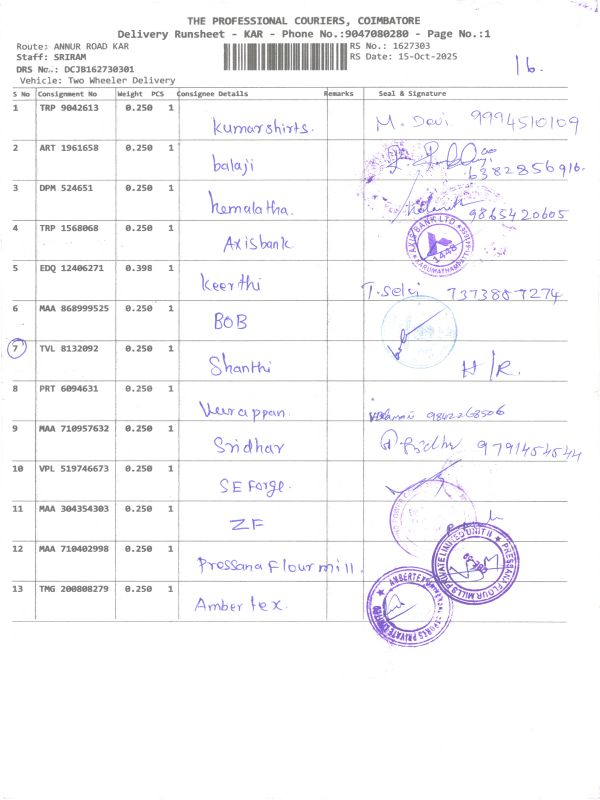 THE PROFESSIONAL COURIERS, COIMBATORE
Delivery Runsheet - KAR - Phone No.:9047080280 - Page No.:1
Route: ANNUR ROAD KAR RS No.: 1627303
Staff: SRIRAM RS Date: 15-Oct-2025
DRS No.: DCJB162730301 16.
Vehicle: Two Wheeler Delivery
S No Consignment No Weight PCS Consignee Details Remarks Seal & Signature
1 TRP 9042613 0.250 1 Kumarshirts. M. Devi 9994510109
2 ART 1961658 0.250 1 balaji 6382856916.
3 DPM 524651 0.250 1 hemalatha. 9865420605
4 TRP 1568068 0.250 1 Axisbank AXIS BANK LTD 1448 KARUMATHAMPATTI
5 EDQ 12406271 0.398 1 Keerthi T. Selvi 7373887274
6 MAA 868999525 0.250 1 BOB
7 TVL 8132092 0.250 1 Shanthi H/R.
8 PRT 6094631 0.250 1 Veerappan. 9842268506
9 MAA 710957632 0.250 1 Sridhar 9791454544
10 VPL 519746673 0.250 1 SE Forge.
11 MAA 304354303 0.250 1 ZF
12 MAA 710402998 0.250 1 Pressana Flour mill. PRESSANA FLOUR MILLS PRIVATE LIMITED UNIT II
13 TMG 200808279 0.250 1 Amber tex.